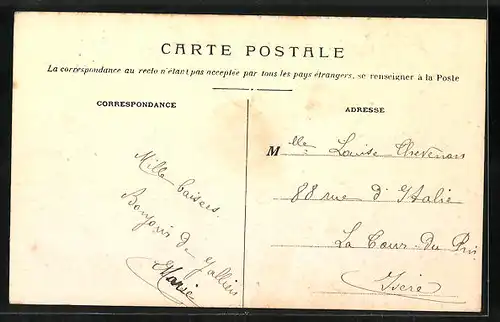 CARTE POSTALE
La correspondance au recto n'étant pas acceptée par tous les pays étrangers, se renseigner à la Poste
CORRESPONDANCE
Mille baisers
Bonjour de
Marie
ADRESSE
Mlle Louise
88 rue d'Italie
La Tour-Du-Pin
Isère